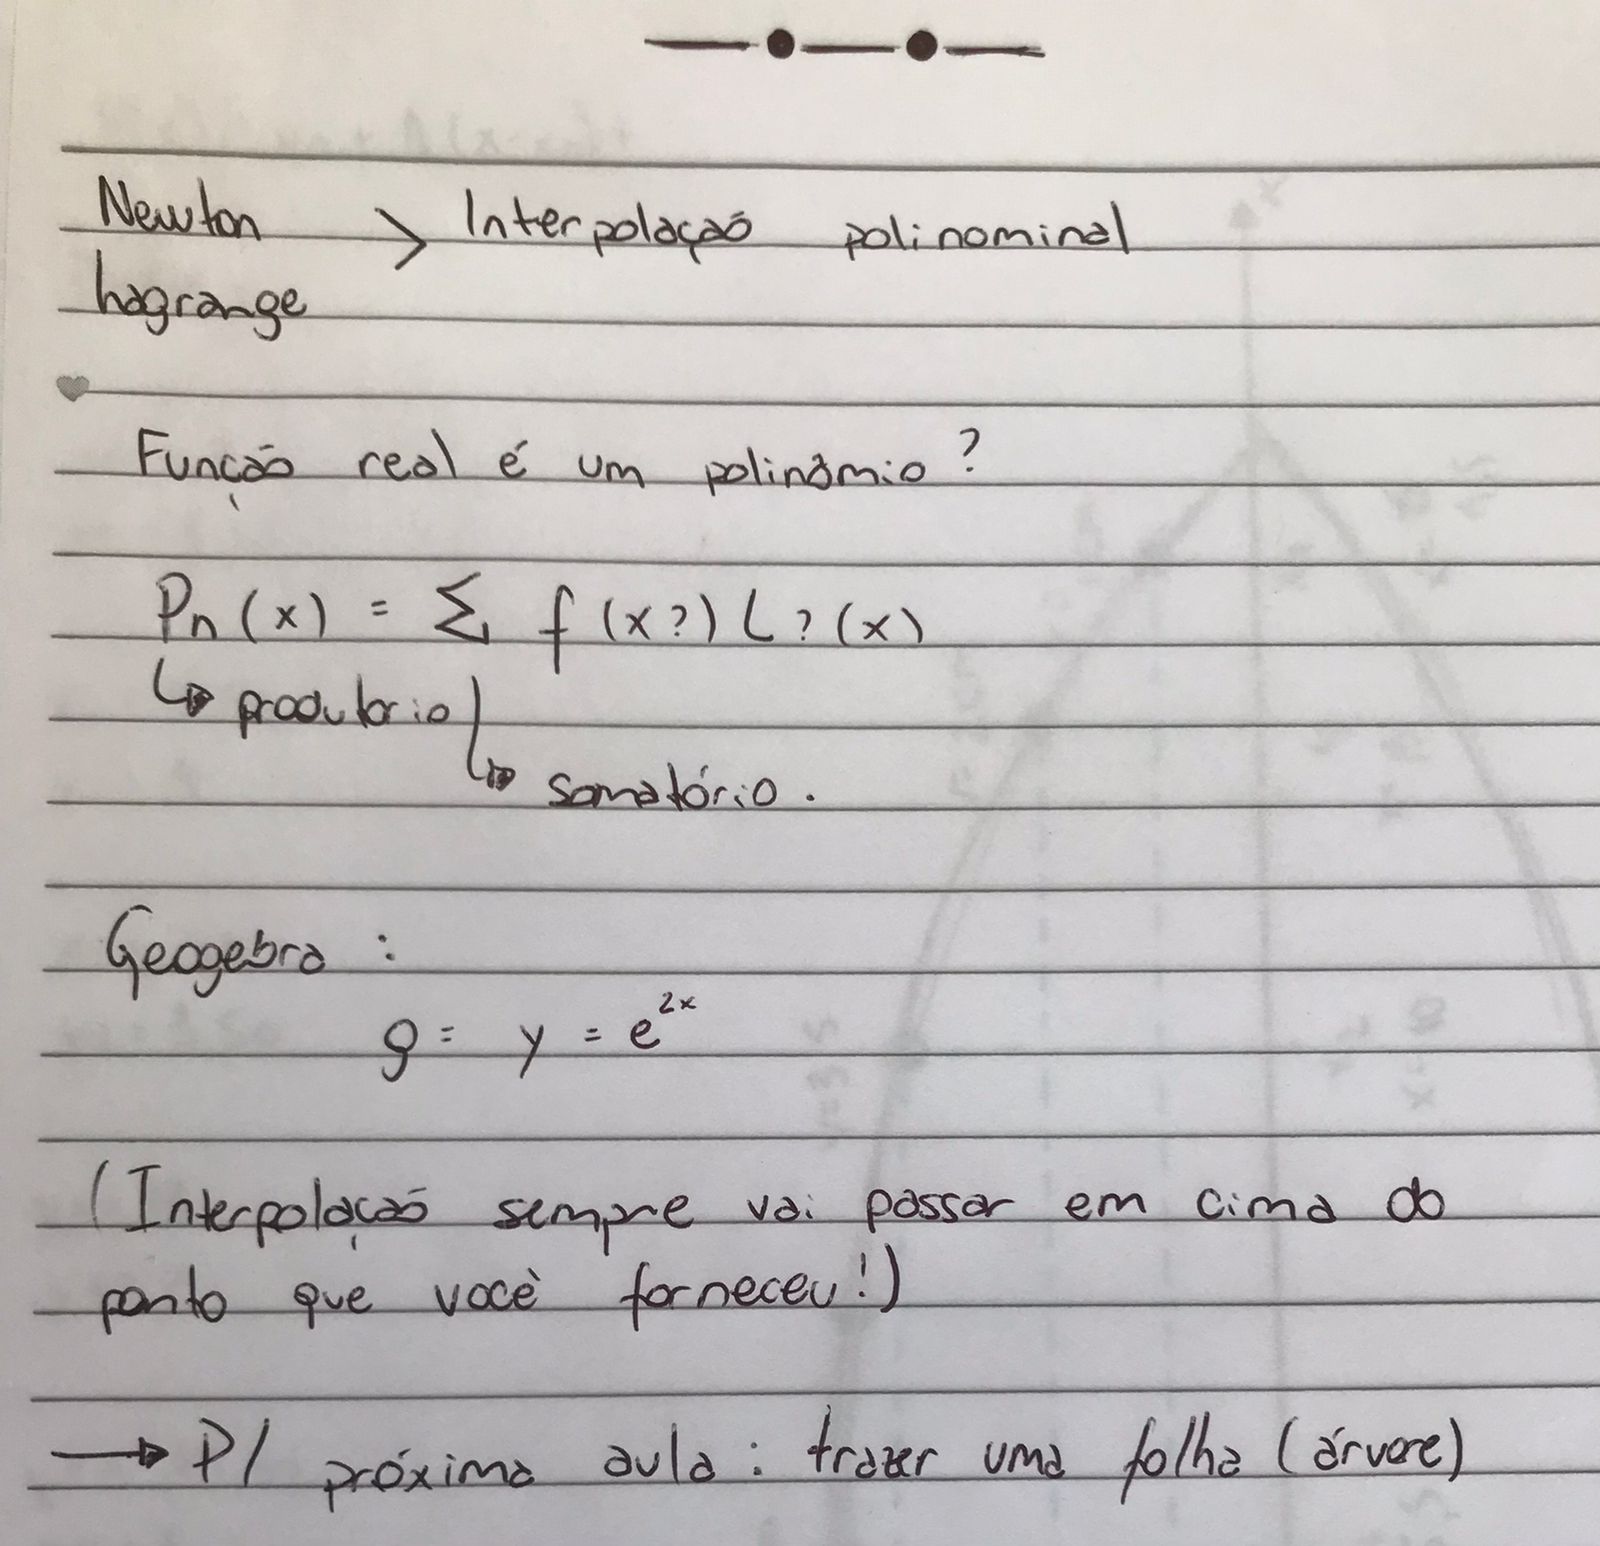 Newton > Interpolação polinominal
Lagrange
Função real é um polinômio?
Pn(x) = Σ f(x?) L?(x)
↳ produtorio
↳ somatório.
Geogebra:
g = y = e^2x
(Interpolação sempre vai passar em cima do
ponto que você forneceu!)
→ P/ próxima aula: trazer uma folha (árvore)